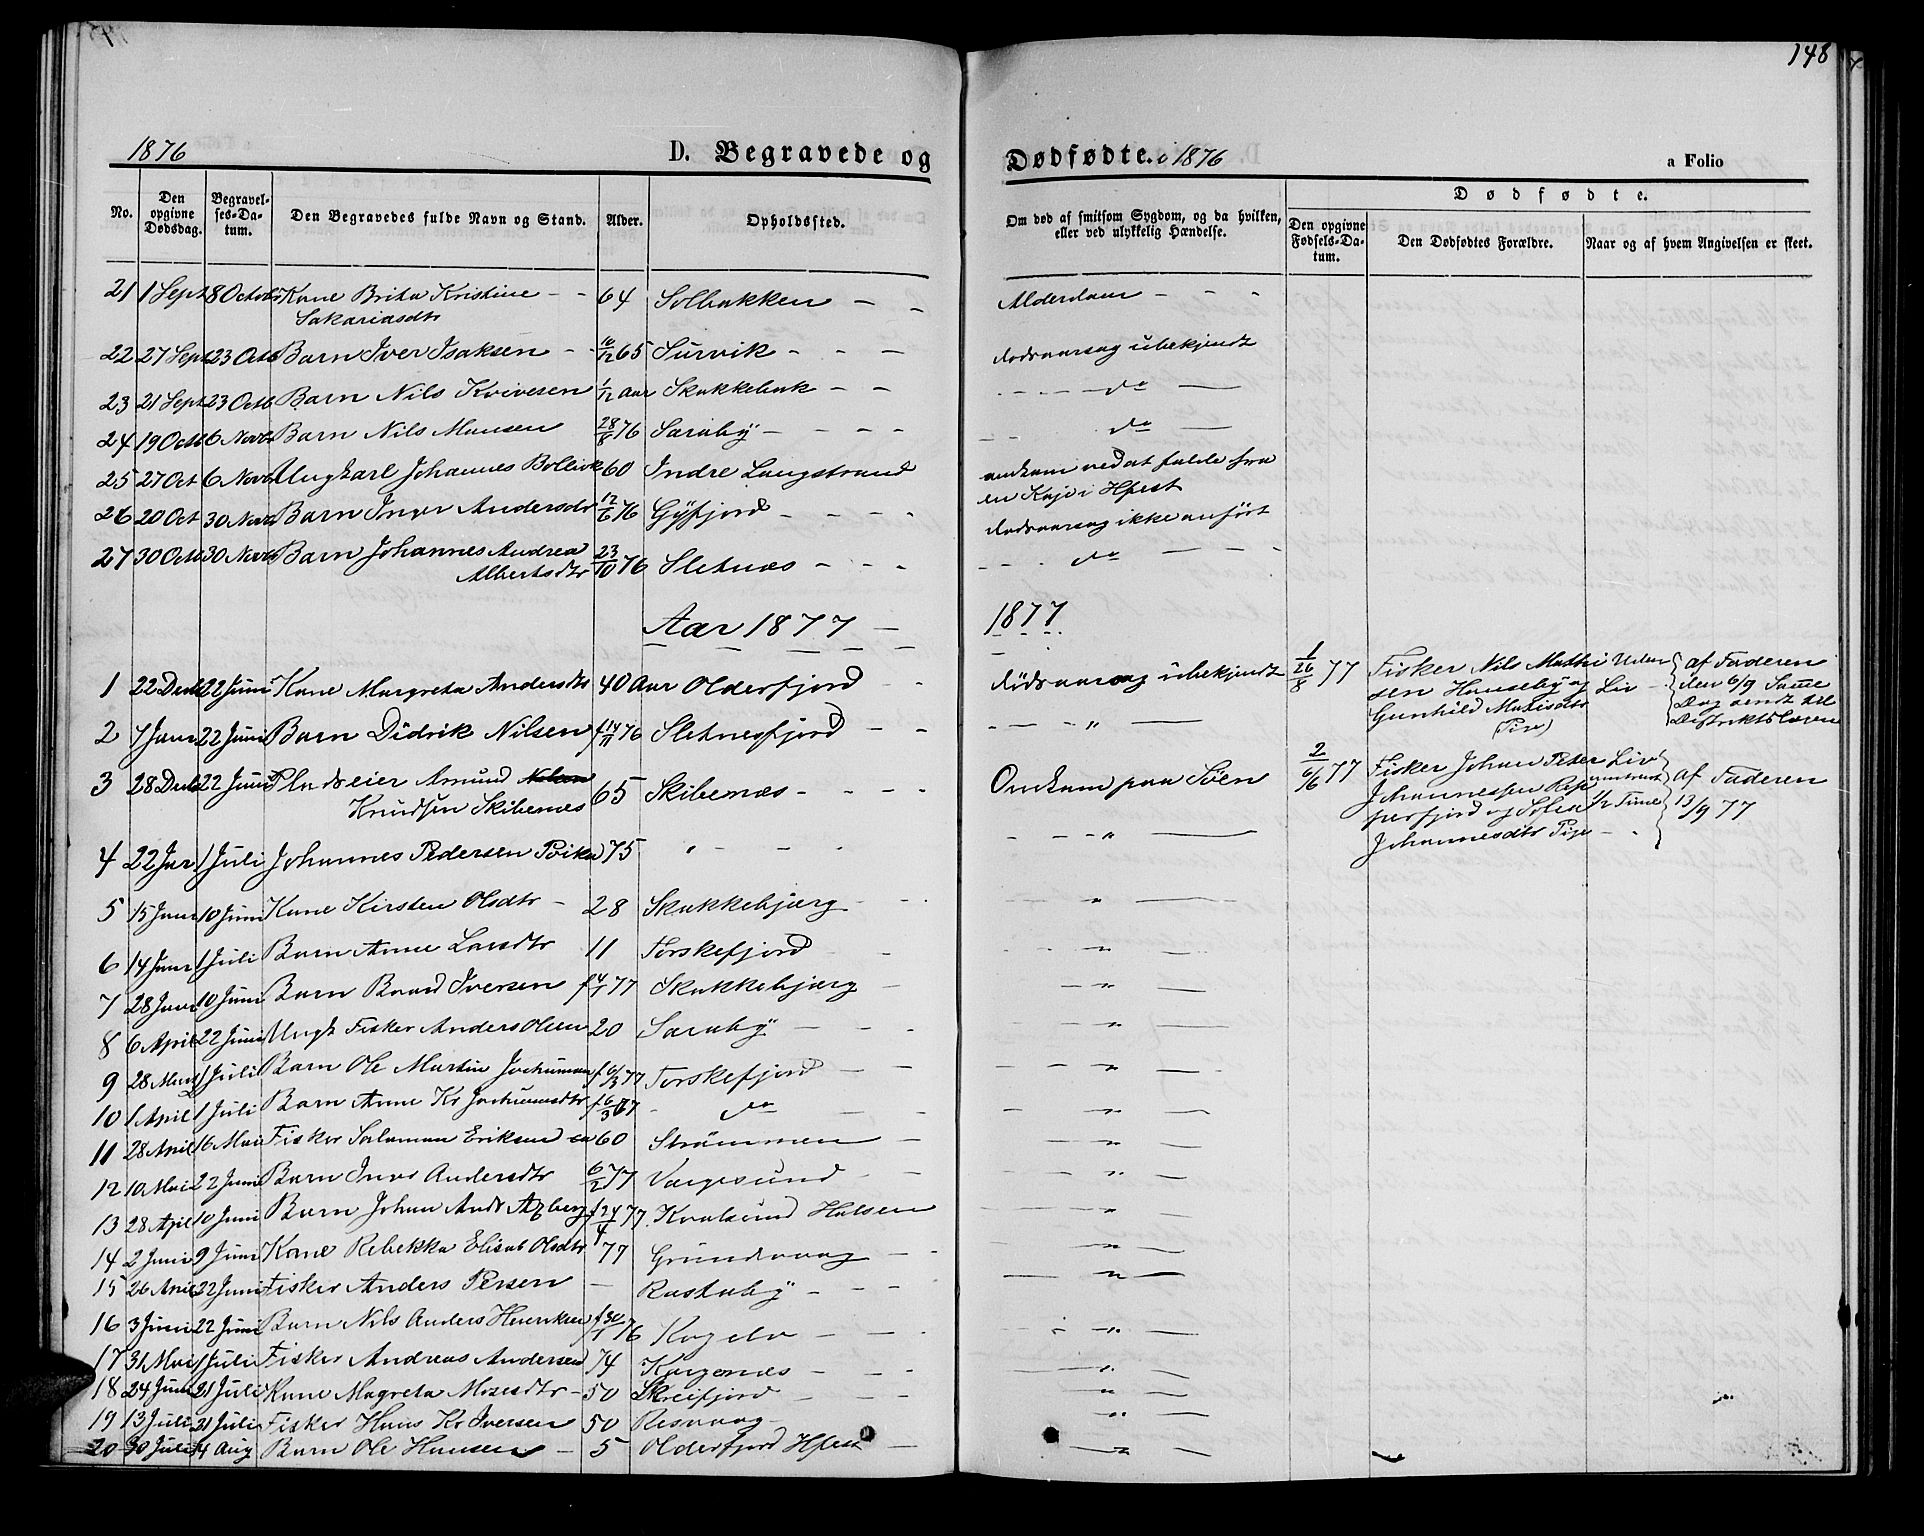 148
1876
D. Begravede og
Dødfødte. i 1876
a Folio
No.
Den opgivne Dødsdag.
Begravelses-Datum.
Den Begravedes fulde Navn og Stand.
Alder.
Opholdssted.
Om død af smitsom Sygdom, og da hvilken, eller ved ulykkelig Hændelse.
Dødfødte.
Den opgivne Fødsels-Datum.
Den Dødfødtes Forældre.
Naar og af hvem Angivelsen er skeet.
21 1 Sept 8 Octobr Kone Brita Kristine - - 64 Solbakken - - Alderdom - - -
Sakariasdtr
22 27 Sept 23 Octb Barn Iver Isaksen - - 10/12 65 Survik - - - Dødsaarsag ubekjendt
23 21 Sept 23 Octb Barn Nils Kvivesen 1/12 Aar Skakkebak - - do
24 19 Octb 6 Novb Barn Nils Monsen 28/8 76 Saraby - - - - do
25 27 Oct 6 Novb Ungkarl Johannes Bollivk 60 Indre Langstrand omkom ved at falde fra
en Kaje i Hfest
26 20 Oct 30 Novb Barn Inger Andersdr 12/6 76 Gyfjord - - - - Dødsaarsag ikke anført
27 30 Octb 30 Novb Barn Johannes Andrea 23/10 76 Sletnæs - - - do
Albertsdtr
Aar 1877 -
1877
1 22 Decb 22 Juni Kone Margreta Andersdtr 40 Aar Olderfjord - - Dødsaarsag ubekjendt
1 26/8 77 Fisker Nils Mathi
sen Hanseby og
Gunhild Mathisdtr
(Pige)
Uden
Liv
af Faderen
den 6/9 Samme
Dag sendt til
Distriktslægen
2 7 Janr 22 Juni Barn Didrik Nilsen f 14/11 76 Sletnesfjord - - - - " -
3 28 Decb 22 Juni Pladseier Amund
Knudsen Skibenæs 65 Skibenæs - - - - Omkom paa Søen
2 6/6 77 Fisker Johan Peter
Johannesen Rep
perfjord og Sofia
Johannesdtr Pige
Liv
1/2 Time
af Faderen
13/9 77
4 22 Jan 1 Juli Johannes Pedersen Poika 75 " - - - - - " -
5 15 Janr 10 Juni Kone Kirsten Olsdtr - 28 Skakkebjerg - - "
6 14 Janr 1 Juli Barn Anne Larsdtr 11 Torskefjord - - "
7 28 Janr 10 Juni Barn Baard Iversen f 4/1 77 Skakkebjerg - "
8 6 April 22 Juni Ungk Fisker Anders Olsen 20 Saraby - - - "
9 28 Marts 1 Juli Barn Ole Martin Jochumsen f 6/3 77 Torskefjord - - "
10 1 April 1 Juli Barn Anne Kr Jochumsdtr f 6/3 67 - do - - "
11 28 April 16 Mai Fisker Salamon Eriksen ca 60 Strømmen - "
12 10 Mai 22 Juni Barn Inger Andersdtr 6/2 77 Vargesund - - "
13 28 Apil 10 Juni Barn Johan Andr f 24/4 77 Kvalsund Halsen "
14 2 Juni 9 Juni Kone Rebekka Elisab Olsdtr 77 Grundvaag - - "
15 26 April 22 Juni Fisker Anders Persen - Rastaby - - - "
16 3 Juni 22 Juni Barn Nils Anders Henriksen f 30/1 76 - - "
17 31 Mai 1 Juli Fisker Andreas Andersen 74 Kargenæs - - "
18 24 Juni 21 Juli Kone Magreta Mosesdtr - 50 Skreifjord - - "
19 13 Juli 31 Juli Fisker Hans Kr Iversen 50 Resvaag - "
20 30 Juli 4 Aug Barn Ole Hansen - 5 Olderfjord Hfest - "